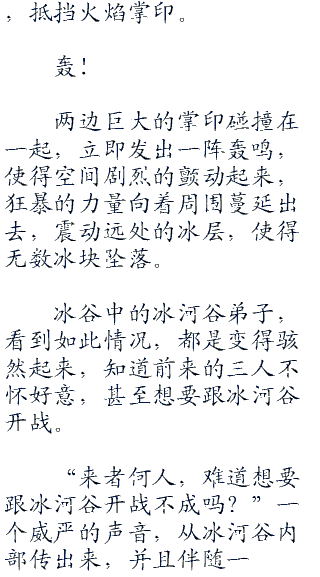 ，抵挡火焰掌印。
轰！
两边巨大的掌印碰撞在
一起，立即发出一阵轰鸣，
使得空间剧烈的颤动起来，
狂暴的力量向着周围蔓延出
去，震动远处的冰层，使得
无数冰块坠落。
冰谷中的冰河谷弟子，
看到如此情况，都是变得骇
然起来，知道前来的三人不
怀好意，甚至想要跟冰河谷
开战。
“来者何人，难道想要
跟冰河谷开战不成吗？”一
个威严的声音，从冰河谷内
部传出来，并且伴随一